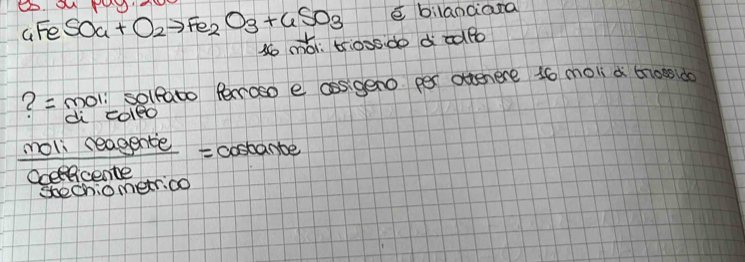 es. su pag.
4FeSO4 + O2 → Fe2O3 + 4SO3 è bilanciata
16 moli triossido di zolfo
? = moli solfato ferroso e ossigeno per ottenere 16 moli di triossido
di zolfo
moli reagente
= costante
coefficente
stechiometrico